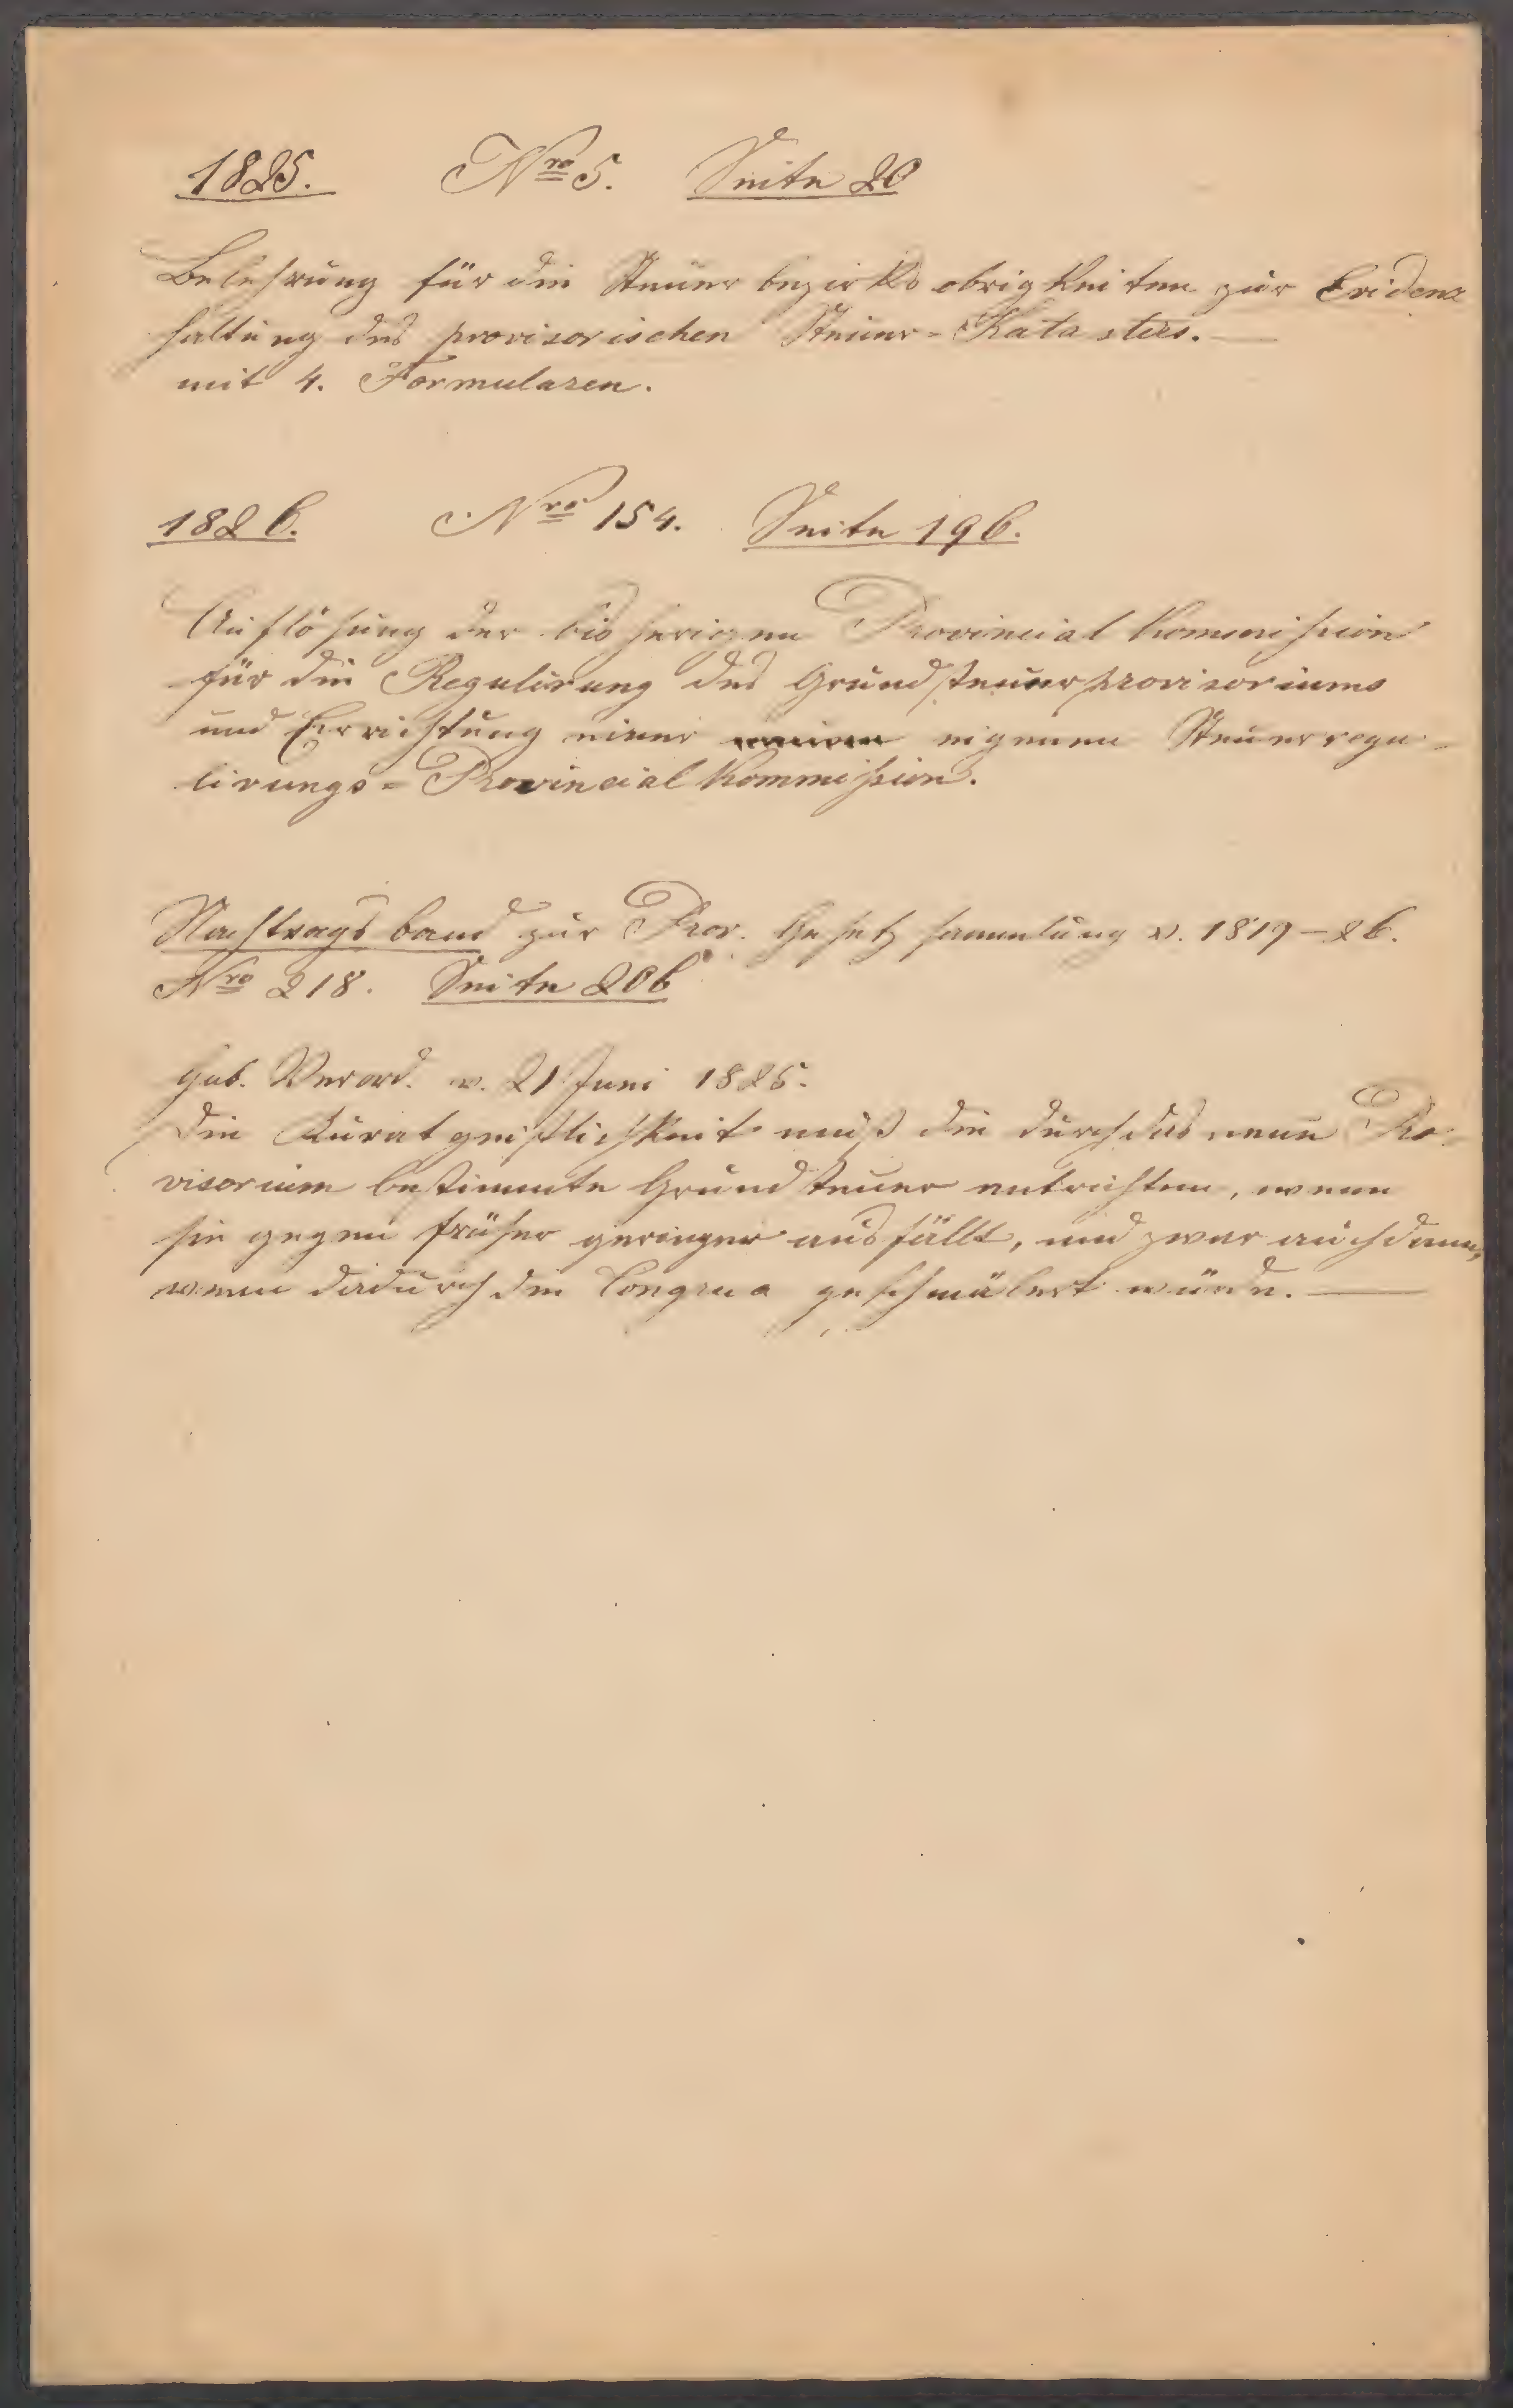 1825. Nro 5. Seite 20
Belehrung für die Steuerbezirksobrigkeiten zur Evidenz
haltung des provisorischen Steuer-Katasters.—
mit 4. Formularen.
1826. Nro 154. Seite 196.
Auflösung der bisherigen Provincial Kommission
für die Regulirung des Grundsteuerprovisoriums
und Errichtung einer eigenen Steuerregu-
lirungs-Provincial Kommission.
Nachtragsband zur Prov. Gesetzsammlung v. 1819–26.
Nro 218. Seite 206
Gub. Verord. v. 21 Juni 1825.
Die Kuratgeistlichkeit muß die durch das neue Pro-
visorium bestimmte Grundsteuer entrichten, wenn
sie gegen früher geringer ausfällt, und zwar auch dann,
wenn dadurch die Congrua geschmälert würde.—